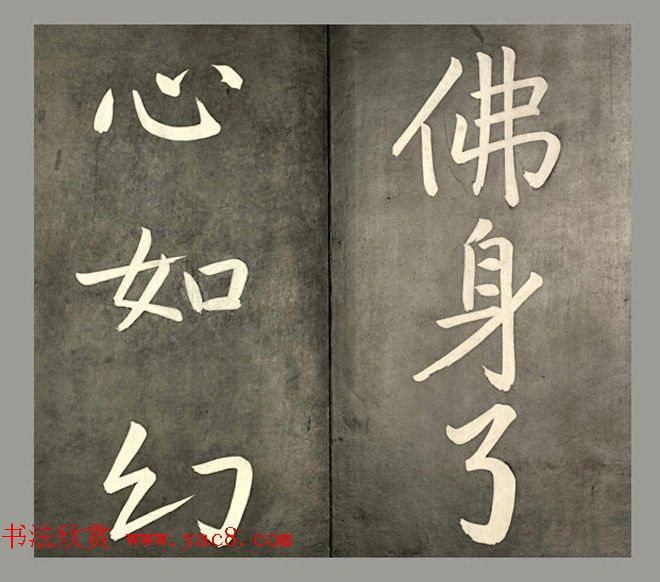 佛身了
心如幻
书法欣赏 www.yac8.com